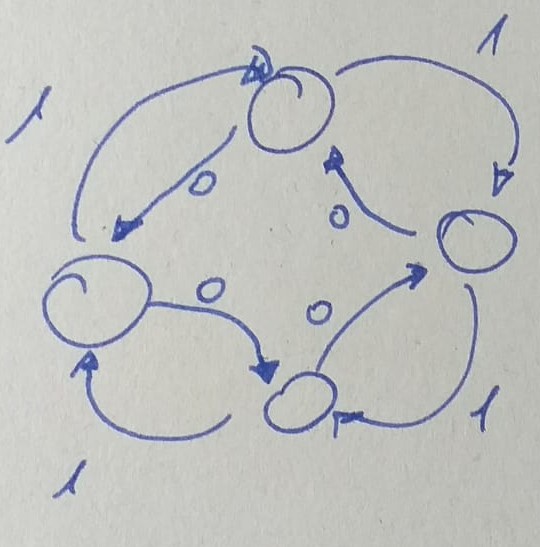 1
1
0
0
0
0
1
1